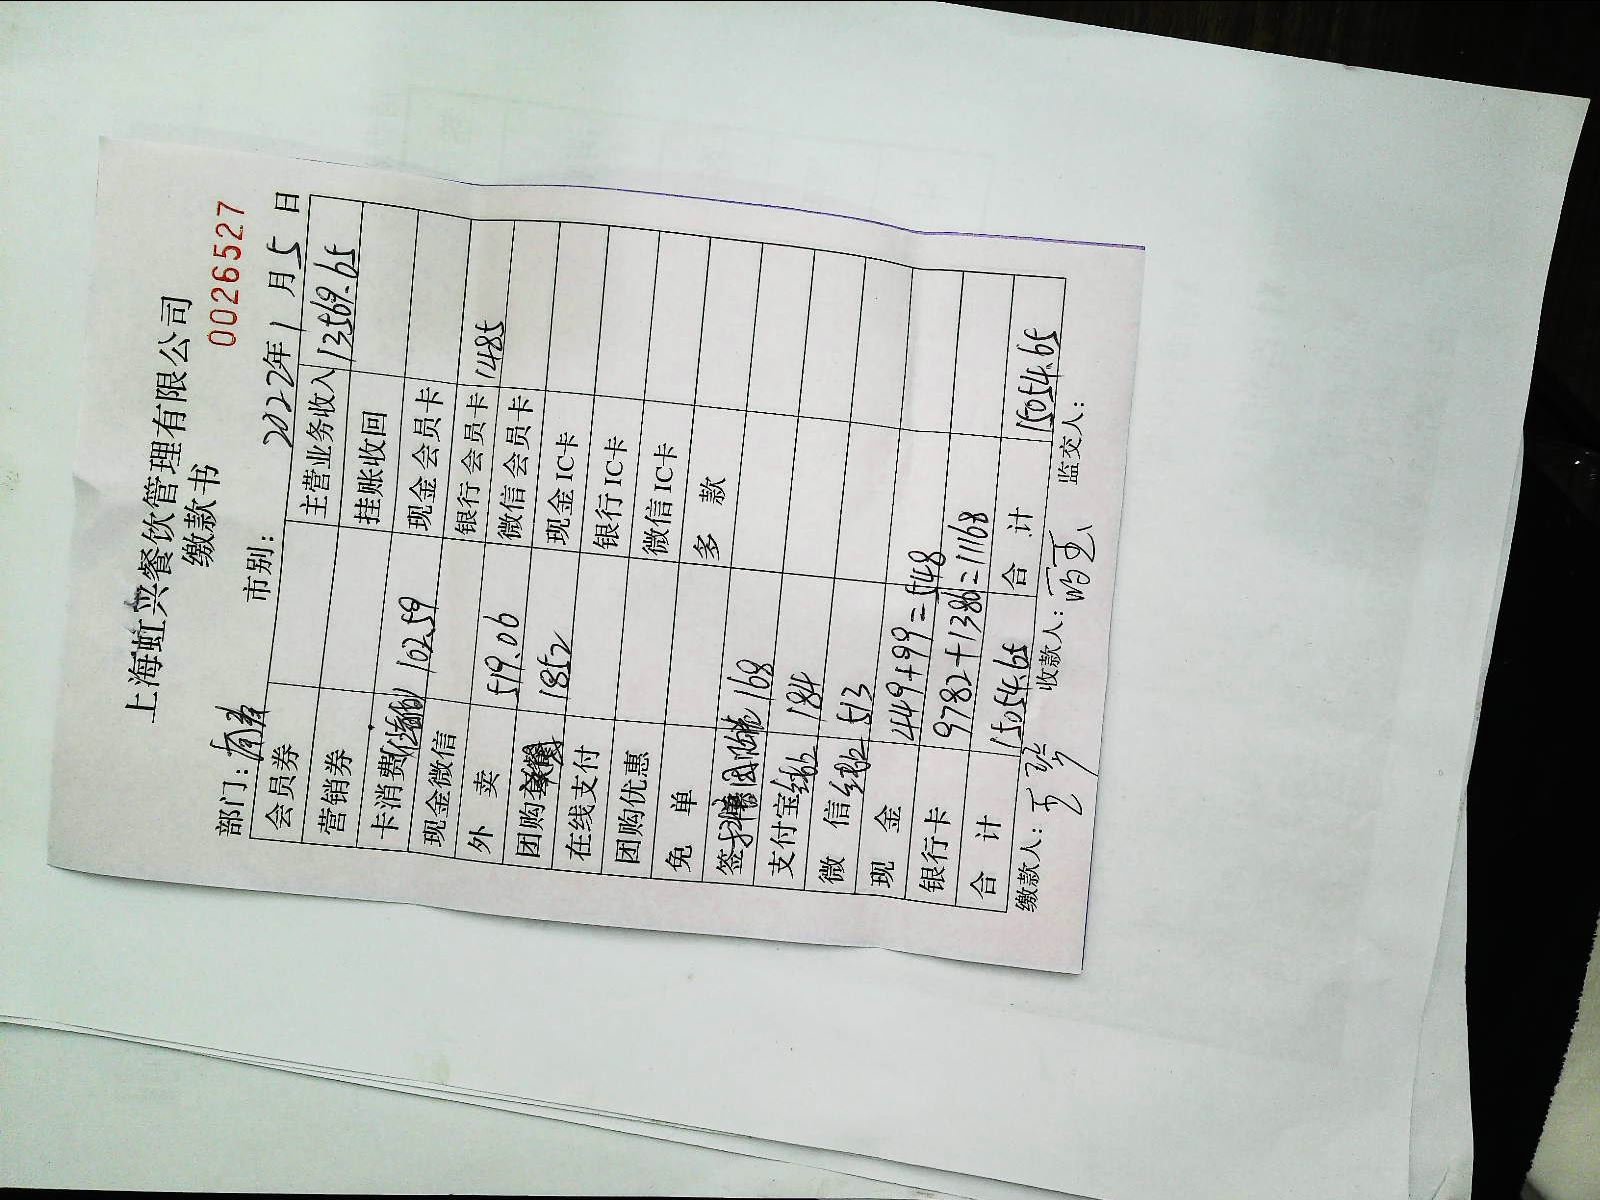 上海虹兴餐饮管理有限公司
缴款书
0026527
部门： 市别： 2022年1月5日
会员券 主营业务收入 13569.65
营销券 挂账收回
卡消费 102.59 现金会员卡
现金微信 银行会员卡 1485
外 卖 519.06 微信会员卡
团购 1852 现金IC卡
在线支付 银行IC卡
团购优惠 微信IC卡
免 单 多 款
签 168
支付宝 184
微 信 513
现 金 449+99=548
银行卡 9782+1386=11168
合 计 15054.65 合 计 15054.65
缴款人： 收款人： 监交人：